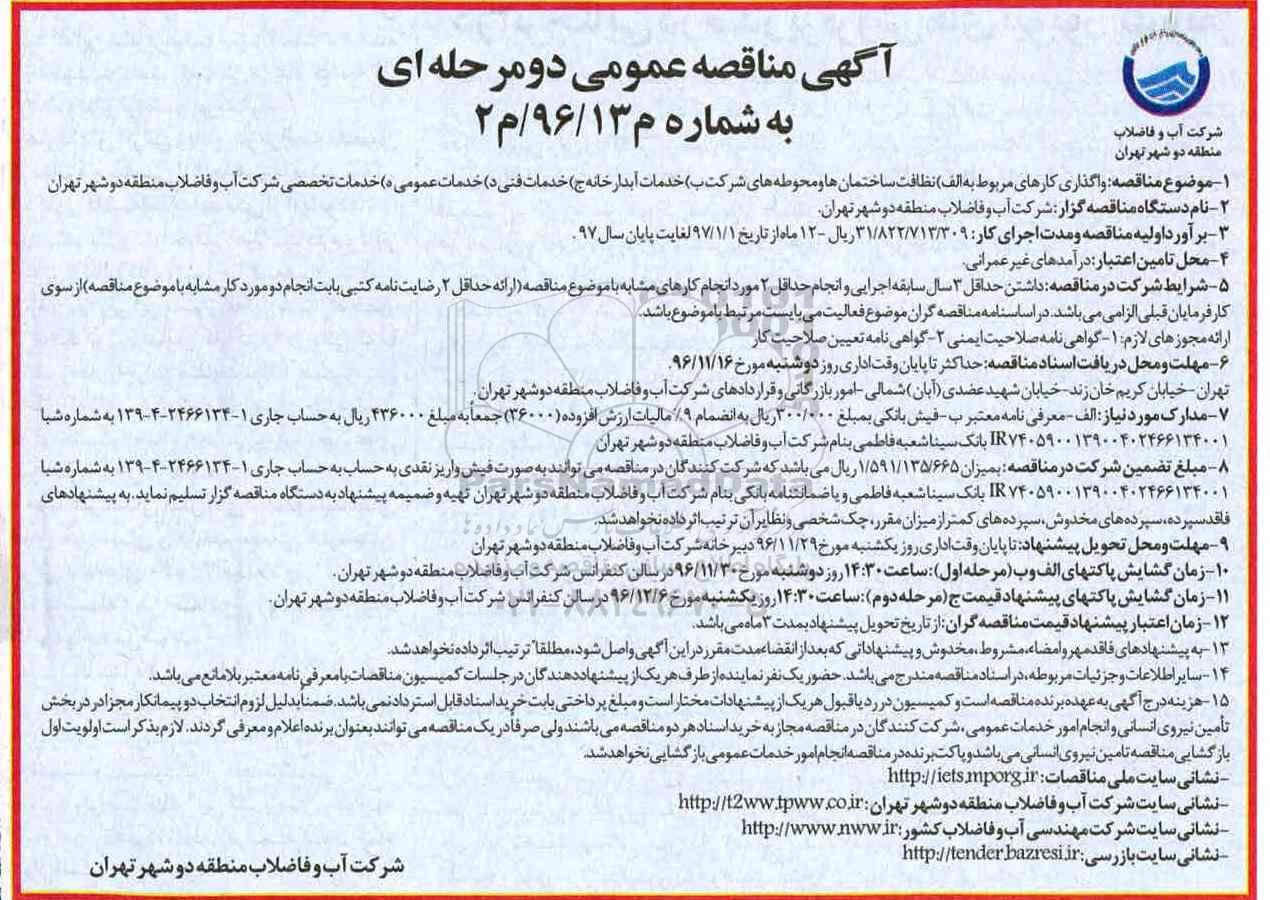 آگهی مناقصه عمومی دومرحله ای
به شماره م۹۶/۱۳/م۲
شرکت آب و فاضلاب
منطقه دو شهر تهران
۱-موضوع مناقصه: واگذاری کارهای مربوط به الف) نظافت ساختمان ها و محوطه های شرکت ب) خدمات آبدارخانه ج) خدمات فنی د) خدمات عمومی ه) خدمات تخصصی شرکت آب و فاضلاب منطقه دو شهر تهران
۲-نام دستگاه مناقصه گزار: شرکت آب و فاضلاب منطقه دو شهر تهران.
۳-برآورد اولیه مناقصه و مدت اجرای کار: ۳۱/۸۲۲/۷۱۳/۳۰۹ ریال -۱۲ ماه از تاریخ ۹۷/۱/۱ لغایت پایان سال ۹۷.
۴-محل تامین اعتبار: درآمدهای غیر عمرانی.
۵-شرایط شرکت در مناقصه: داشتن حداقل ۳ سال سابقه اجرایی و انجام حداقل ۲ مورد انجام کارهای مشابه با موضوع مناقصه (ارائه حداقل ۲ رضایت نامه کتبی بابت انجام دو مورد کار مشابه با موضوع مناقصه) از سوی
کارفرمایان قبلی الزامی می باشد. در اساسنامه مناقصه گران موضوع فعالیت می بایست مرتبط با موضوع باشد.
ارائه مجوزهای لازم: ۱-گواهی نامه صلاحیت ایمنی ۲-گواهی نامه تعیین صلاحیت کار
۶-مهلت و محل دریافت اسناد مناقصه: حداکثر تا پایان وقت اداری روز دوشنبه مورخ ۹۶/۱۱/۱۶.
تهران-خیابان کریم خان زند-خیابان شهید عضدی (آبان) شمالی-امور بازرگانی و قراردادهای شرکت آب و فاضلاب منطقه دو شهر تهران.
۷-مدارک مورد نیاز: الف-معرفی نامه معتبر ب-فیش بانکی بمبلغ ۴۰۰/۰۰۰ ریال به انضمام ۹٪ مالیات ارزش افزوده (۳۶۰۰۰) جمعاً به مبلغ ۴۳۶۰۰۰ ریال به حساب جاری ۱-۲۴۶۶۱۳۴-۴-۱۳۹ به شماره شبا
IR۷۴۰۵۹۰۰۱۳۹۰۰۴۰۲۴۶۶۱۳۴۰۰۱ بانک سینا شعبه فاطمی بنام شرکت آب و فاضلاب منطقه دو شهر تهران
۸-مبلغ تضمین شرکت در مناقصه: بمیزان ۱/۵۹۱/۱۳۵/۶۶۵ ریال می باشد که شرکت کنندگان در مناقصه می توانند به صورت فیش واریز نقدی به حساب به حساب جاری ۱-۲۴۶۶۱۳۴-۴-۱۳۹ به شماره شبا
IR۷۴۰۵۹۰۰۱۳۹۰۰۴۰۲۴۶۶۱۳۴۰۰۱ بانک سینا شعبه فاطمی و یا ضمانتنامه بانکی بنام شرکت آب و فاضلاب منطقه دو شهر تهران تهیه و ضمیمه پیشنهاد به دستگاه مناقصه گزار تسلیم نماید. به پیشنهادهای
فاقد سپرده، سپرده های مخدوش، سپرده های کمتر از میزان مقرر، چک شخصی و نظایر آن ترتیب اثر داده نخواهد شد.
۹-مهلت و محل تحویل پیشنهاد: تا پایان وقت اداری روز یکشنبه مورخ ۹۶/۱۱/۲۹ دبیرخانه شرکت آب و فاضلاب منطقه دو شهر تهران
۱۰-زمان گشایش پاکتهای الف و ب (مرحله اول): ساعت ۱۴:۳۰ روز دوشنبه مورخ ۹۶/۱۱/۳۰ در سالن کنفرانس شرکت آب و فاضلاب منطقه دو شهر تهران.
۱۱-زمان گشایش پاکتهای پیشنهاد قیمت ج (مرحله دوم): ساعت ۱۴:۳۰ روز یکشنبه مورخ ۹۶/۱۲/۶ در سالن کنفرانس شرکت آب و فاضلاب منطقه دو شهر تهران.
۱۲-زمان اعتبار پیشنهاد قیمت مناقصه گران: از تاریخ تحویل پیشنهاد بمدت ۳ ماه می باشد.
۱۳-به پیشنهادهای فاقد مهر و امضاء، مشروط، مخدوش و پیشنهاداتی که بعد از انقضاء مدت مقرر در این آگهی واصل شود، مطلقاً ترتیب اثر داده نخواهد شد.
۱۴-سایر اطلاعات و جزئیات مربوطه، در اسناد مناقصه مندرج می باشد. حضور یک نفر نماینده از طرف هر یک از پیشنهاد دهندگان در جلسات کمیسیون مناقصات با معرفی نامه معتبر بلامانع می باشد.
۱۵-هزینه درج آگهی به عهده برنده مناقصه است و کمیسیون در رد یا قبول هر یک از پیشنهادات مختار است و مبلغ پرداختی بابت خرید اسناد قابل استرداد نمی باشد. ضمناً بدلیل لزوم انتخاب دو پیمانکار مجزا در در بخش
تأمین نیروی انسانی و انجام امور خدمات عمومی، شرکت کنندگان در مناقصه مجاز به خرید اسناد هر دو مناقصه می باشند ولی صرفاً در یک مناقصه می توانند بعنوان برنده اعلام و معرفی گردند. لازم بذکر است اولویت اول
بازگشایی مناقصه تامین نیروی انسانی می باشد و پاکت برنده در مناقصه انجام امور خدمات عمومی بازگشایی نخواهد شد.
-نشانی سایت ملی مناقصات: http://iets.mporg.ir
-نشانی سایت شرکت آب و فاضلاب منطقه دو شهر تهران: http://t2ww.tpww.co.ir
-نشانی سایت شرکت مهندسی آب و فاضلاب کشور: http://www.nww.ir
-نشانی سایت بازرسی: http://tender.bazresi.ir
شرکت آب و فاضلاب منطقه دو شهر تهران
ParsNamadData